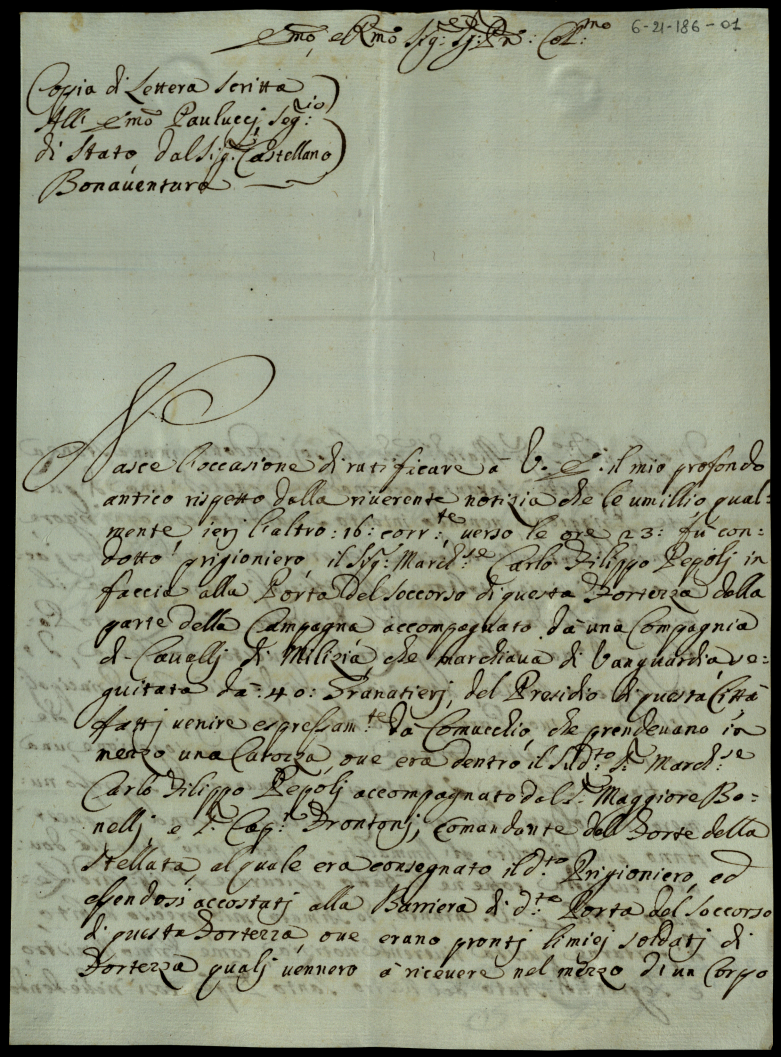 Em̃o, e Rm̃o Sig:re Sig:re Pne: Col:mo
6-21-186-01
Coppia di Lettera scritta
All' Em̃o Paulucci Seg:rio
di Stato dal Sig:r Castellano
Bonauentura
Nasce l'occasione di ratificare à V. E: il mio profondo
antico rispetto dalla riuerente notizia che le umillio qual=
mente ierj l'altro: 16: corr:te verso le ore 23: fù con=
dotto prigioniero il Sig:r March:se Carlo Filippo Pepolj in
faccia alla Porta del soccorso di questa Fortezza dalla
parte della Campagna accompagnato dà una Compagnia
di Cauallj di Milizia, che marchiaua di Vanguardia, se=
guitata dà: 40: Granatierj, del Presidio di questa Città
fattj uenire espressam:te da Comacchio, che prendeuano in
mezzo una Carozza, oue era dentro il Sud:to S:r March:se
Carlo Filippo Pepolj accompagnato dal S:r Maggiore Bo=
nellj e S:r Cap: Frontonj, Comandante del Forte della
Stellata, al quale era consegnato il d:to Prigioniero, ed
essendosi accostatj alla Barriera di d:ta Porta del soccorso
di questa Fortezza, oue erano prontj li miej soldatj di
Fortezza qualj uennero à riceuere nel mezzo di un Corpo